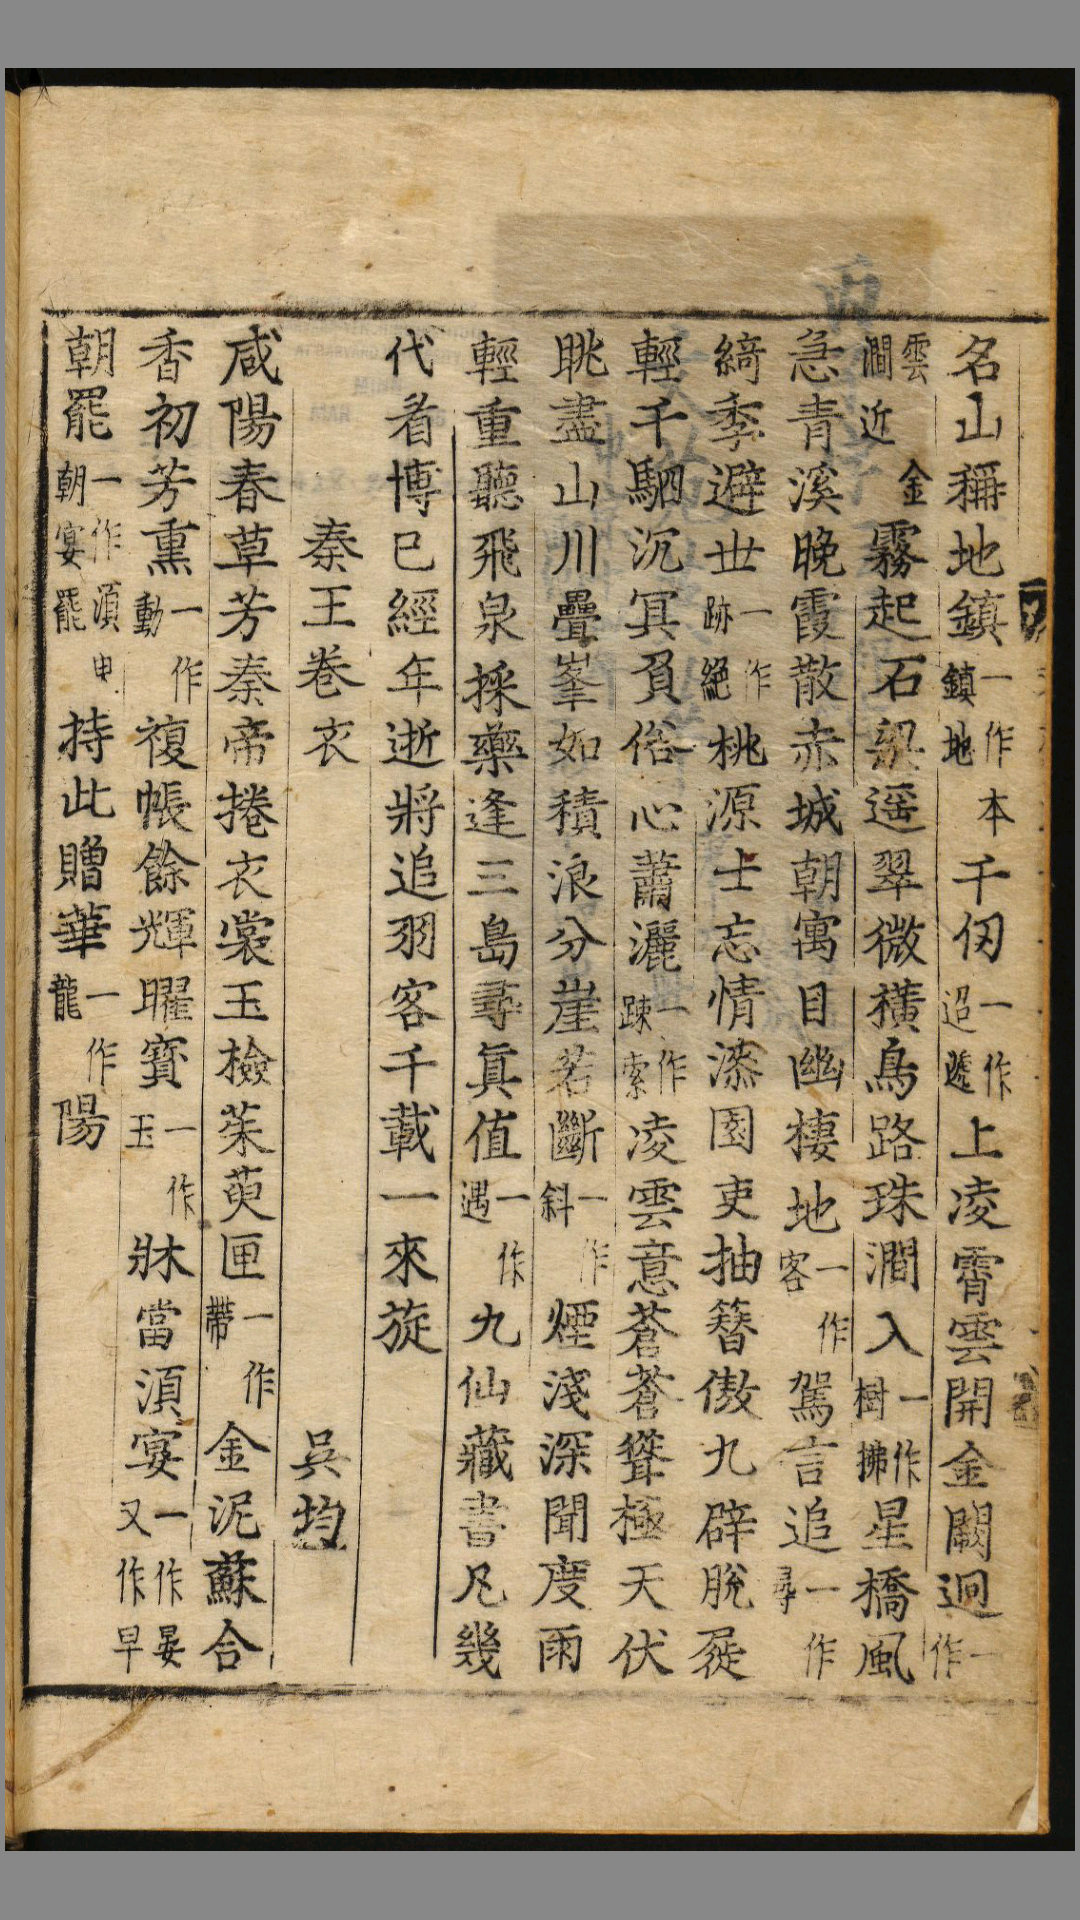 名山稱地鎮一作鎮地本千仞一作迢遞上凌霄雲開金闕迥一作
雲澗近金霧起石梁遥翠微橫鳥路珠澗入一作樹拂星橋風
急青溪晚霞散赤城朝寓目幽棲地一作客駕言追一作尋
綺季避世一作跡絕桃源士忘情漆園吏抽簪傲九辟脫屣
輕千駟沉冥負俗心蕭灑一作踈索凌雲意蒼蒼聳極天伏
眺盡山川疊峯如積浪分崖若斷一作斜煙淺深聞度雨
輕重聽飛泉採藥逢三島尋真值一作遇九仙藏書凡幾
代看博已經年逝將追羽客千載一來旋
秦王卷衣 吳均
咸陽春草芳秦帝捲衣裳玉檢茱萸匣一作帶金泥蘇合
香初芳熏一作動複帳餘輝曜寶一作玉牀當湏宴一作晏又作早
朝罷一作湏申朝宴罷持此贈華一作龍陽